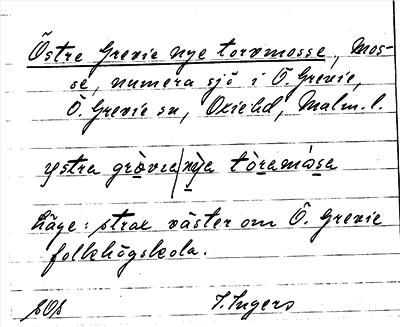 Östre Grevie nye torvmosse, Mos-
se, numera sjö i Ö. Grevie,
Ö. Grevie sn, Oxiehd, Malm. l.
ystra gràvia nỳa tòramåsa
Läge: strax väster om Ö. Grevie
folkhögskola.
I. Ingers